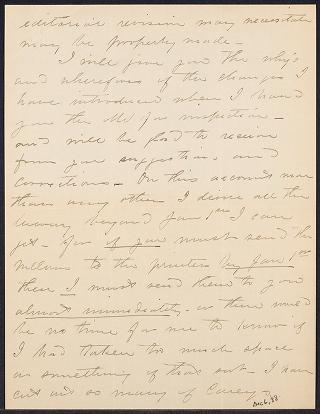 editorial revision may necessitate
may be properly made -
I will give you the why's
and wherefores of the changes I
have introduced when I hand
you the MS for inspection -
and will be glad to receive
from you suggestions and
corrections - On this account more
than any other I desire all the
leeway beyond Jan 1st I can
get - for if you must send the
 to the printers by Jan 1st
then I must send them to you
almost immediately - or there would
be no time for me to know if
I had taken too much space
or something of that sort. I have
cut out so many of Carey's
Dec 6, 88.